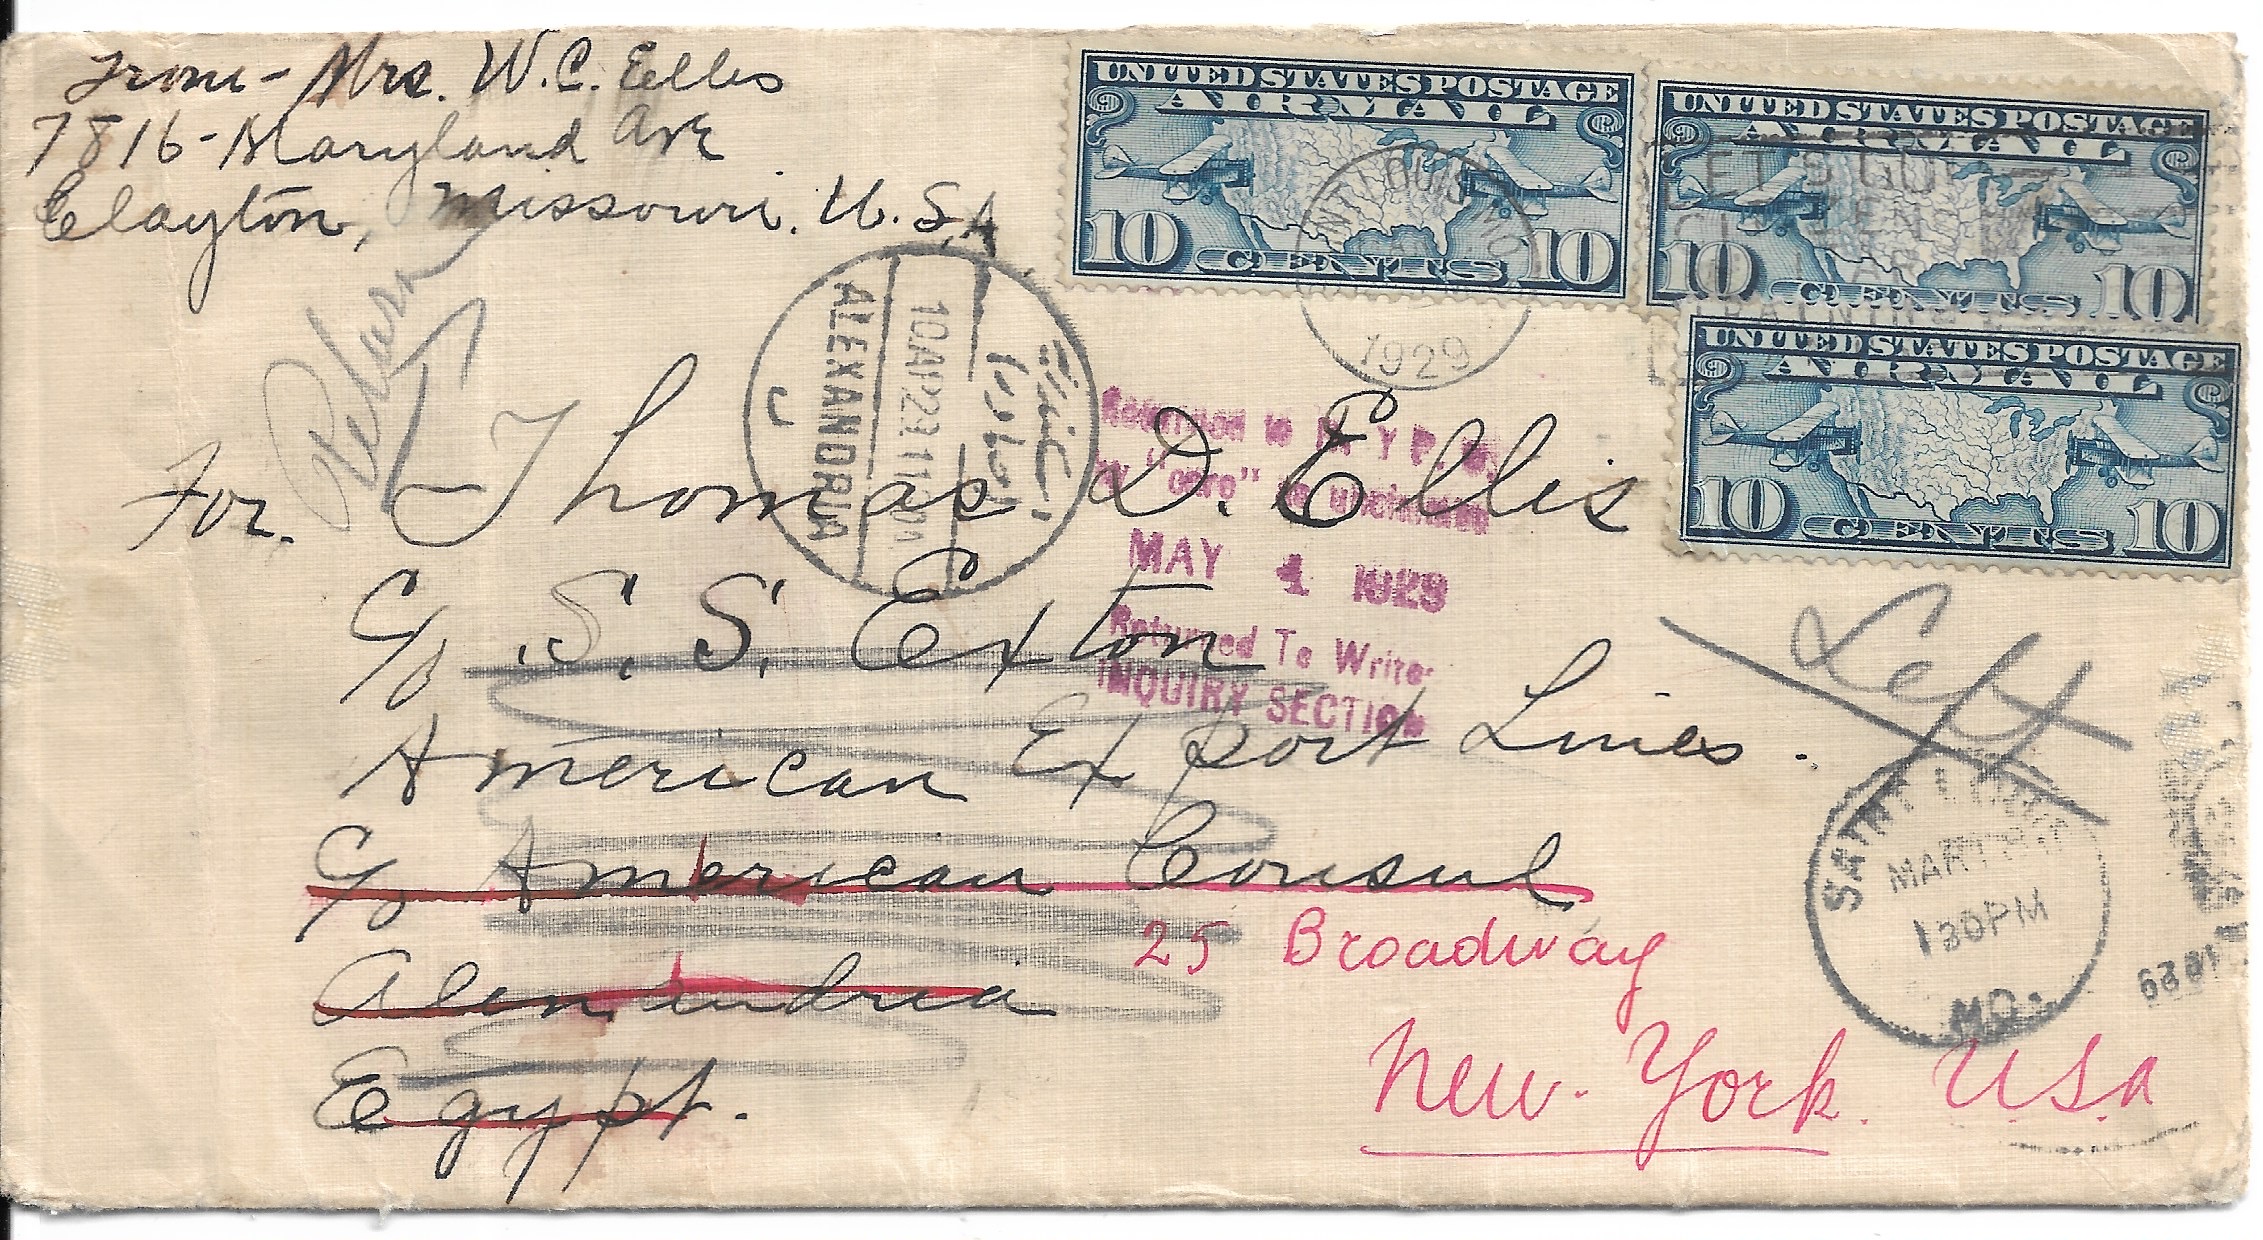 From - Mrs. W. C. Ellis
7816 - Maryland Ave
Clayton, Missouri. U.S.A.
UNITED STATES POSTAGE
AIR MAIL
10 CENTS 10
UNITED STATES POSTAGE
AIR MAIL
10 CENTS 10
UNITED STATES POSTAGE
AIR MAIL
10 CENTS 10
1929
Return
ALEXANDRIA
10 AP 29 11
Returned to N Y P. O.
by "opre" as unclaimed
MAY 1 1929
Returned To Writer
INQUIRY SECTION
For. Thomas D. Ellis
C/o S. S. Exton
American Export Lines.
C/o American Consul
Alexandria
Egypt.
25 Broadway
New-York. U.S.A
Left
SAINT LOUIS
MAR
130PM
MO.
1929